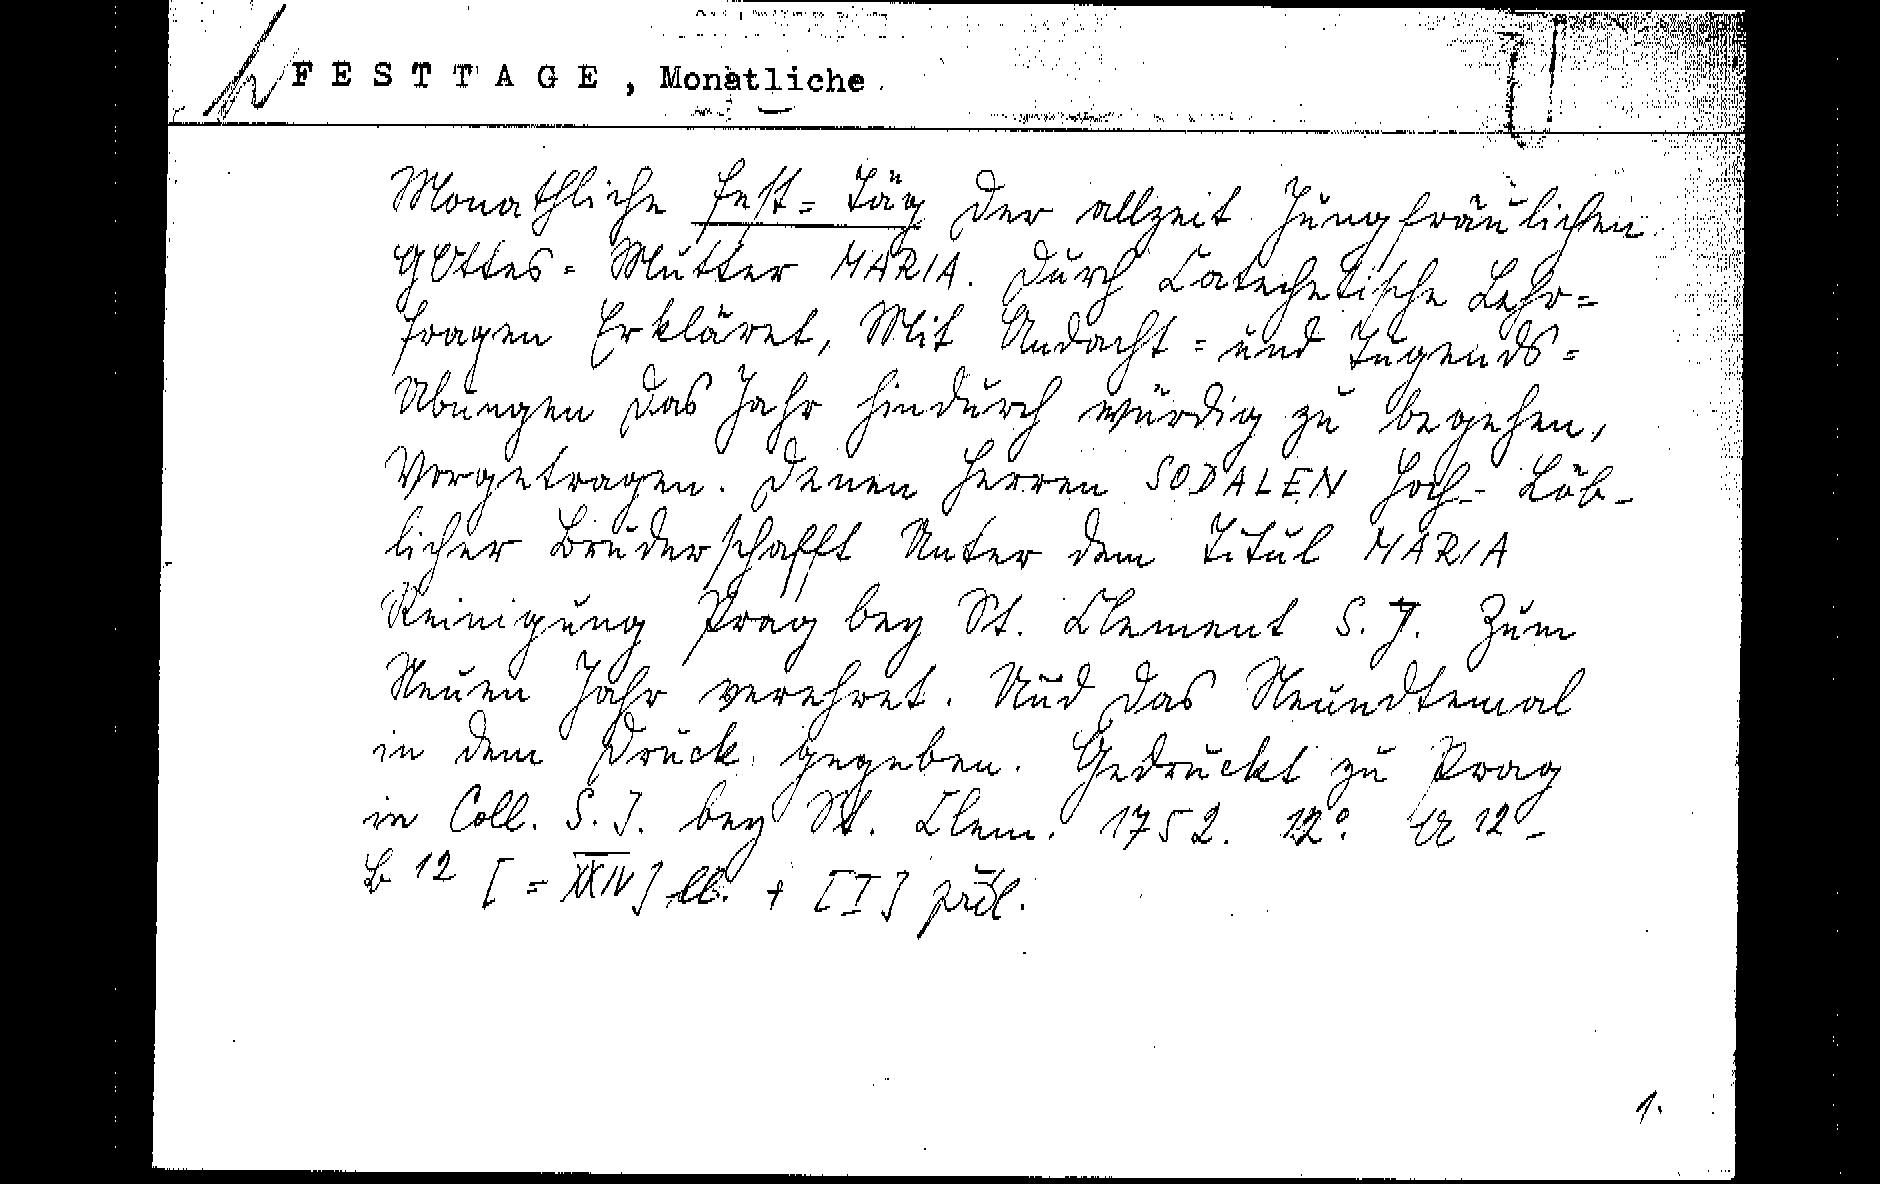 F E S T T A G E , Monatliche
Monathliche Fest= Täg Der allzeit Jungfräulichen
GOttes= Mutter MARIA. Durch Catechetische Lehr=
fragen Erkläret, Mit Andacht= und Tugends=
Ubungen Das Jahr hindurch würdig zu begehen,
Vorgetragen. Denen Herren SODALEN Hoch- Löb-
licher Bruderschafft Unter dem Titul MARIA
Reinigung Prag bey St. Clement S.J. Zum
Neuen Jahr verehret. Und Das Neundtemal
in dem Druck gegeben. Gedruckt zu Prag
in Coll. S.J. bey St. Clem. 1752. 12°. A 12-
B 12 [= XXIV] ll. + [I] příl.
1.